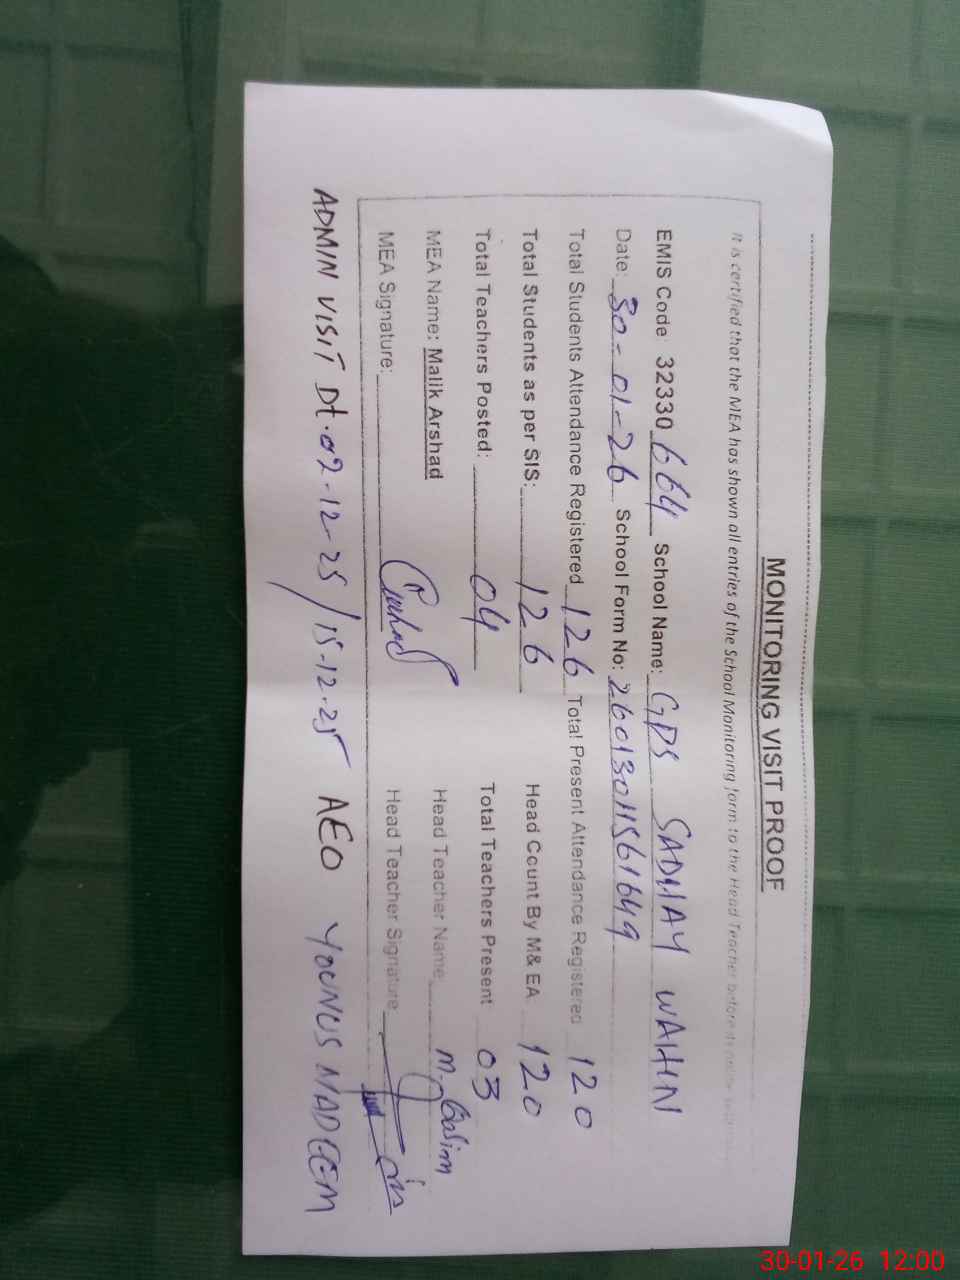 MONITORING VISIT PROOF
It is certified that the MEA has shown all entries of the School Monitoring form to the Head Teacher before
EMIS Code: 32330 664 School Name: GPS SADIIAY WAHIN
Date: 30-01-26 School Form No: 26013011561649
Total Students Attendance Registered 126 Total Present Attendance Registered 120
Total Students as per SIS: 126 Head Count By M& EA 120
Total Teachers Posted: 04 Total Teachers Present 03
MEA Name: Malik Arshad Head Teacher Name: M. Qasim
MEA Signature: Head Teacher Signature:
ADMIN VISIT Dt. 02-12-25/15-12-25 AEO YOUNUS NADEEM
30-01-26 12:00